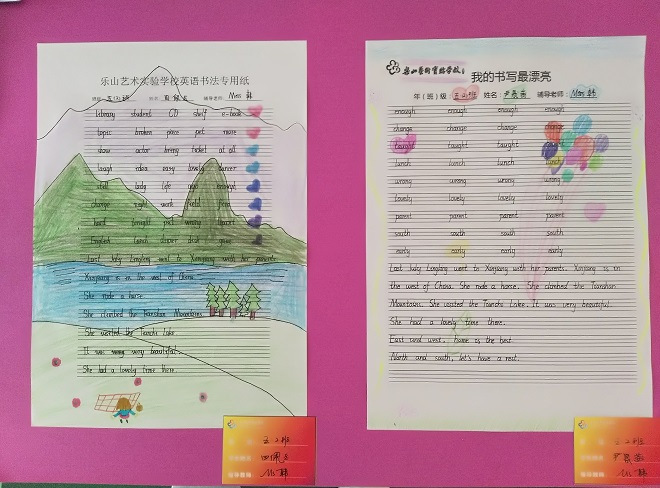 乐山艺术实验学校英语书法专用纸
Library student CD shelf e-book
topic broken piece pet more
show actor bring ticket at all
laugh idea easy lovely dancer
still lady life enough
change right work field
hard tonight put wrong
English lunch dish
Last July Lingling went to Xinjiang with her parents.
Xinjiang is in the west of China.
She rode a horse.
She climbed the Tianshan Mountains.
She visited the Tianchi Lake.
It was very beautiful.
She had a lovely time there.
五.2班
Ms 韩
乐山艺术实验学校
我的书写最漂亮
年(班)级 五.2班 姓名: 辅导老师: Ms 韩
enough enough enough enough
change change change change
taught taught taught
lunch lunch lunch lunch
wrong wrong wrong wrong
lovely lovely lovely lovely
parent parent parent parent
south south south south
early early early early
Last July Lingling went to Xinjiang with her parents. Xinjiang is in
the west of China. She rode a horse. She climbed the Tianshan
Mountains. She visited the Tianchi Lake. It was very beautiful.
She had a lovely time there.
East and west, home is the best.
North and south, let's have a rest.
五.2班
Ms 韩